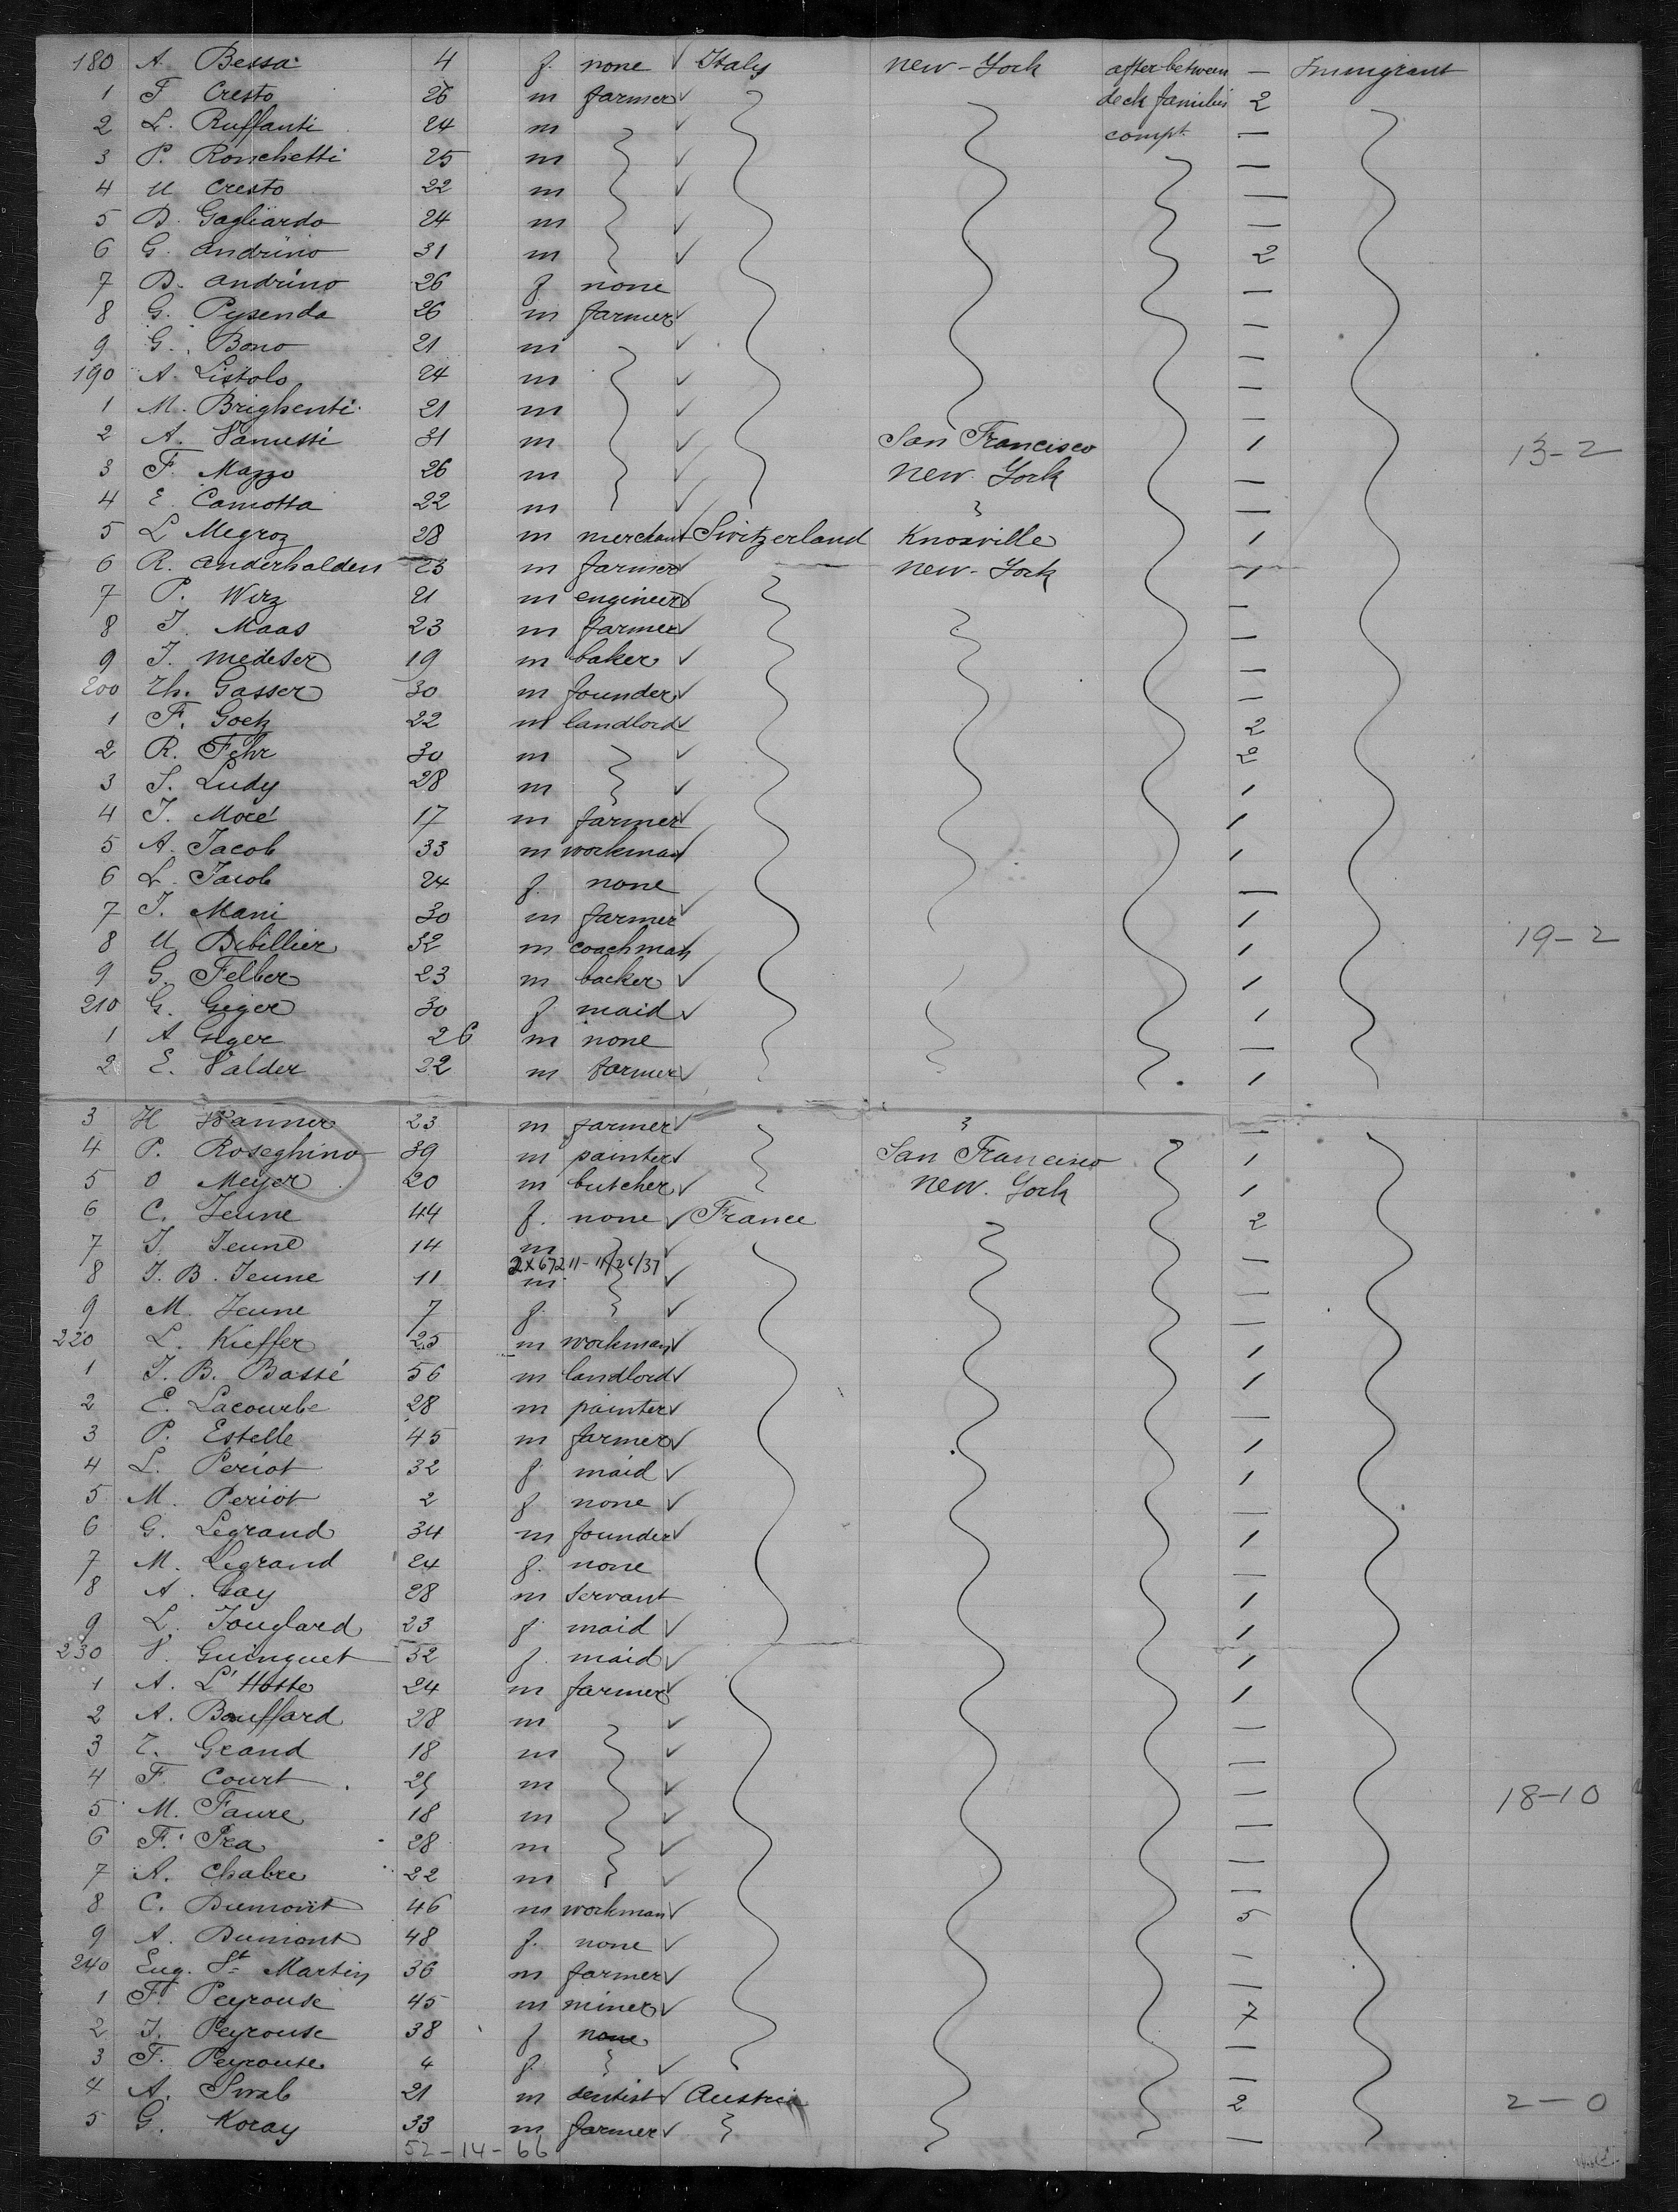 180 A. Bessa 4 f. none ✓ Italy new-York after between — Immigrant
1 F Cresto 26 m farmer ✓ deck families 2
2 L. Ruffanti 24 m ✓ compt. —
3 P. Ronchetti 25 m ✓ —
4 U Cresto 22 m ✓ —
5 D. Gagliardo 24 m ✓ —
6 G. Andrino 31 m ✓ 2
7 D. Andrino 26 f. none —
8 G. Pysenda 26 m farmer ✓ —
9 G. Bono 21 m ✓ —
190 A. Listolo 24 m ✓ —
1 M. Brighenti 21 m ✓ —
2 A. Vanussi 31 m ✓ San Francisco 1 13-2
3 F. Mazzo 26 m ✓ new. York —
4 E. Camotta 22 m ✓ —
5 L Megroz 28 m merchant ✓ Switzerland Knoxville 1
6 R. Anderhalden 23 m farmer ✓ new-York 1
7 P. Wirz 21 m engineer ✓ —
8 J. Maas 23 m farmer ✓ —
9 J. Medeser 19 m baker ✓ —
200 Th. Gasser 30 m founder ✓ —
1 F. Goetz 22 m landlord ✓ 2
2 R. Fehr 30 m ✓ 2
3 S. Ludy 28 m ✓ 1
4 J. Moré 17 m farmer ✓ 1
5 A. Jacob 33 m workman 1
6 L. Jacob 24 f. none —
7 J. Mani 30 m farmer ✓ 1
8 U. Dibillier 32 m coachman 1 19-2
9 G. Felber 23 m backer ✓ 1
210 G. Geger 30 f maid ✓ 1
1 A Geger 26 m none —
2 E. Valder 22 m farmer ✓ 1
3 H Wanner 23 m farmer ✓ —
4 P. Roseghino 39 m painter ✓ San Francisco 1
5 O Meyer 20 m butcher ✓ new. York 1
6 C. Jeune 44 f. none ✓ France 2
7 J. Jeune 14 m ✓ —
2X67211-11/26/37
8 J. B. Jeune 11 m ✓ —
9 M. Jeune 7 f. ✓ —
220 L. Kieffer 25 m workman ✓ 1
1 J. B. Bassé 56 m landlord ✓ 1
2 E. Lacourbe 28 m painter ✓ —
3 P. Estelle 45 m farmer ✓ 1
4 L. Periot 32 f. maid ✓ 1
5 M. Periot 2 f none ✓ —
6 G. Legrand 34 m founder ✓ 1
7 M. Legrand 24 f. none —
8 A. Gay 28 m servant 1
9 L. Jouglard 23 f. maid ✓ 1
230 V. Guinguet 52 f. maid ✓ 1
1 A. L'Hoste 24 m farmer ✓ 1
2 A. Bouffard 28 m ✓ —
3 T. Grand 18 m ✓ —
4 F. Court 25 m ✓ — 18-10
5 M. Faure 18 m ✓ —
6 F. Pra 28 m ✓ —
7 A. Chabre 22 m ✓ —
8 C. Dumont 46 m workman ✓ 5
9 A. Dumont 48 f. none ✓ —
240 Eug. St Martin 36 m farmer ✓ —
1 F. Peyrouse 45 m miner ✓ 7
2 J. Peyrouse 38 f none —
3 F. Peyrouse 4 f. ✓ —
4 A. Swab 21 m dentist ✓ Austria 2 2-0
5 G. Koray 33 m farmer ✓ —
52-14-66